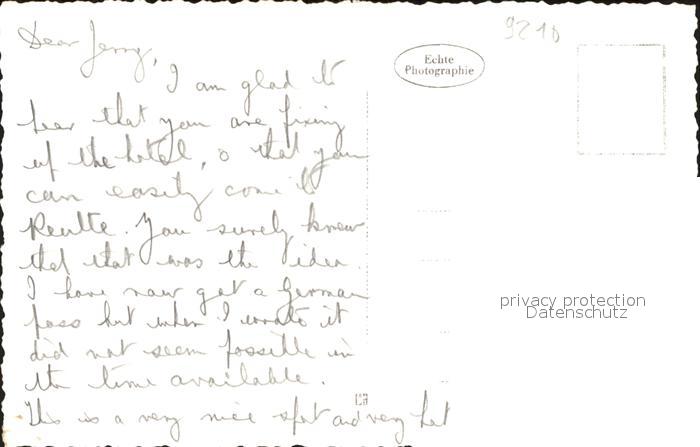 Dear Jerry,
I am glad to
hear that you are fixing
up the hotel, & that you
can easily come to
Reutte. You surely knew
that that was the idea.
I have now got a German
pass but when I wrote it
did not seem possible in
the time available.
This is a very nice spot and very hot
Echte
Photographie
9210
privacy protection
Datenschutz